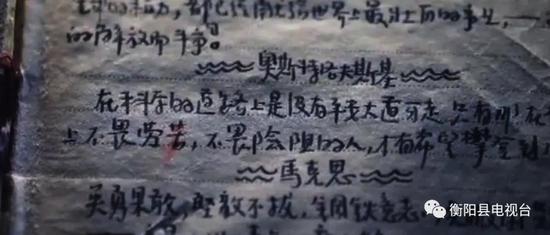 的精力,都已经献给世界上最壮丽的事业,一
的解放而斗争。
奥斯特洛夫斯基
在科学的道路上是没有平坦大道可走,只有那在
上不畏劳苦,不畏险阻的人,才有希望攀登到
馬克思
英勇果敢,坚毅不拔,
衡阳县电视台